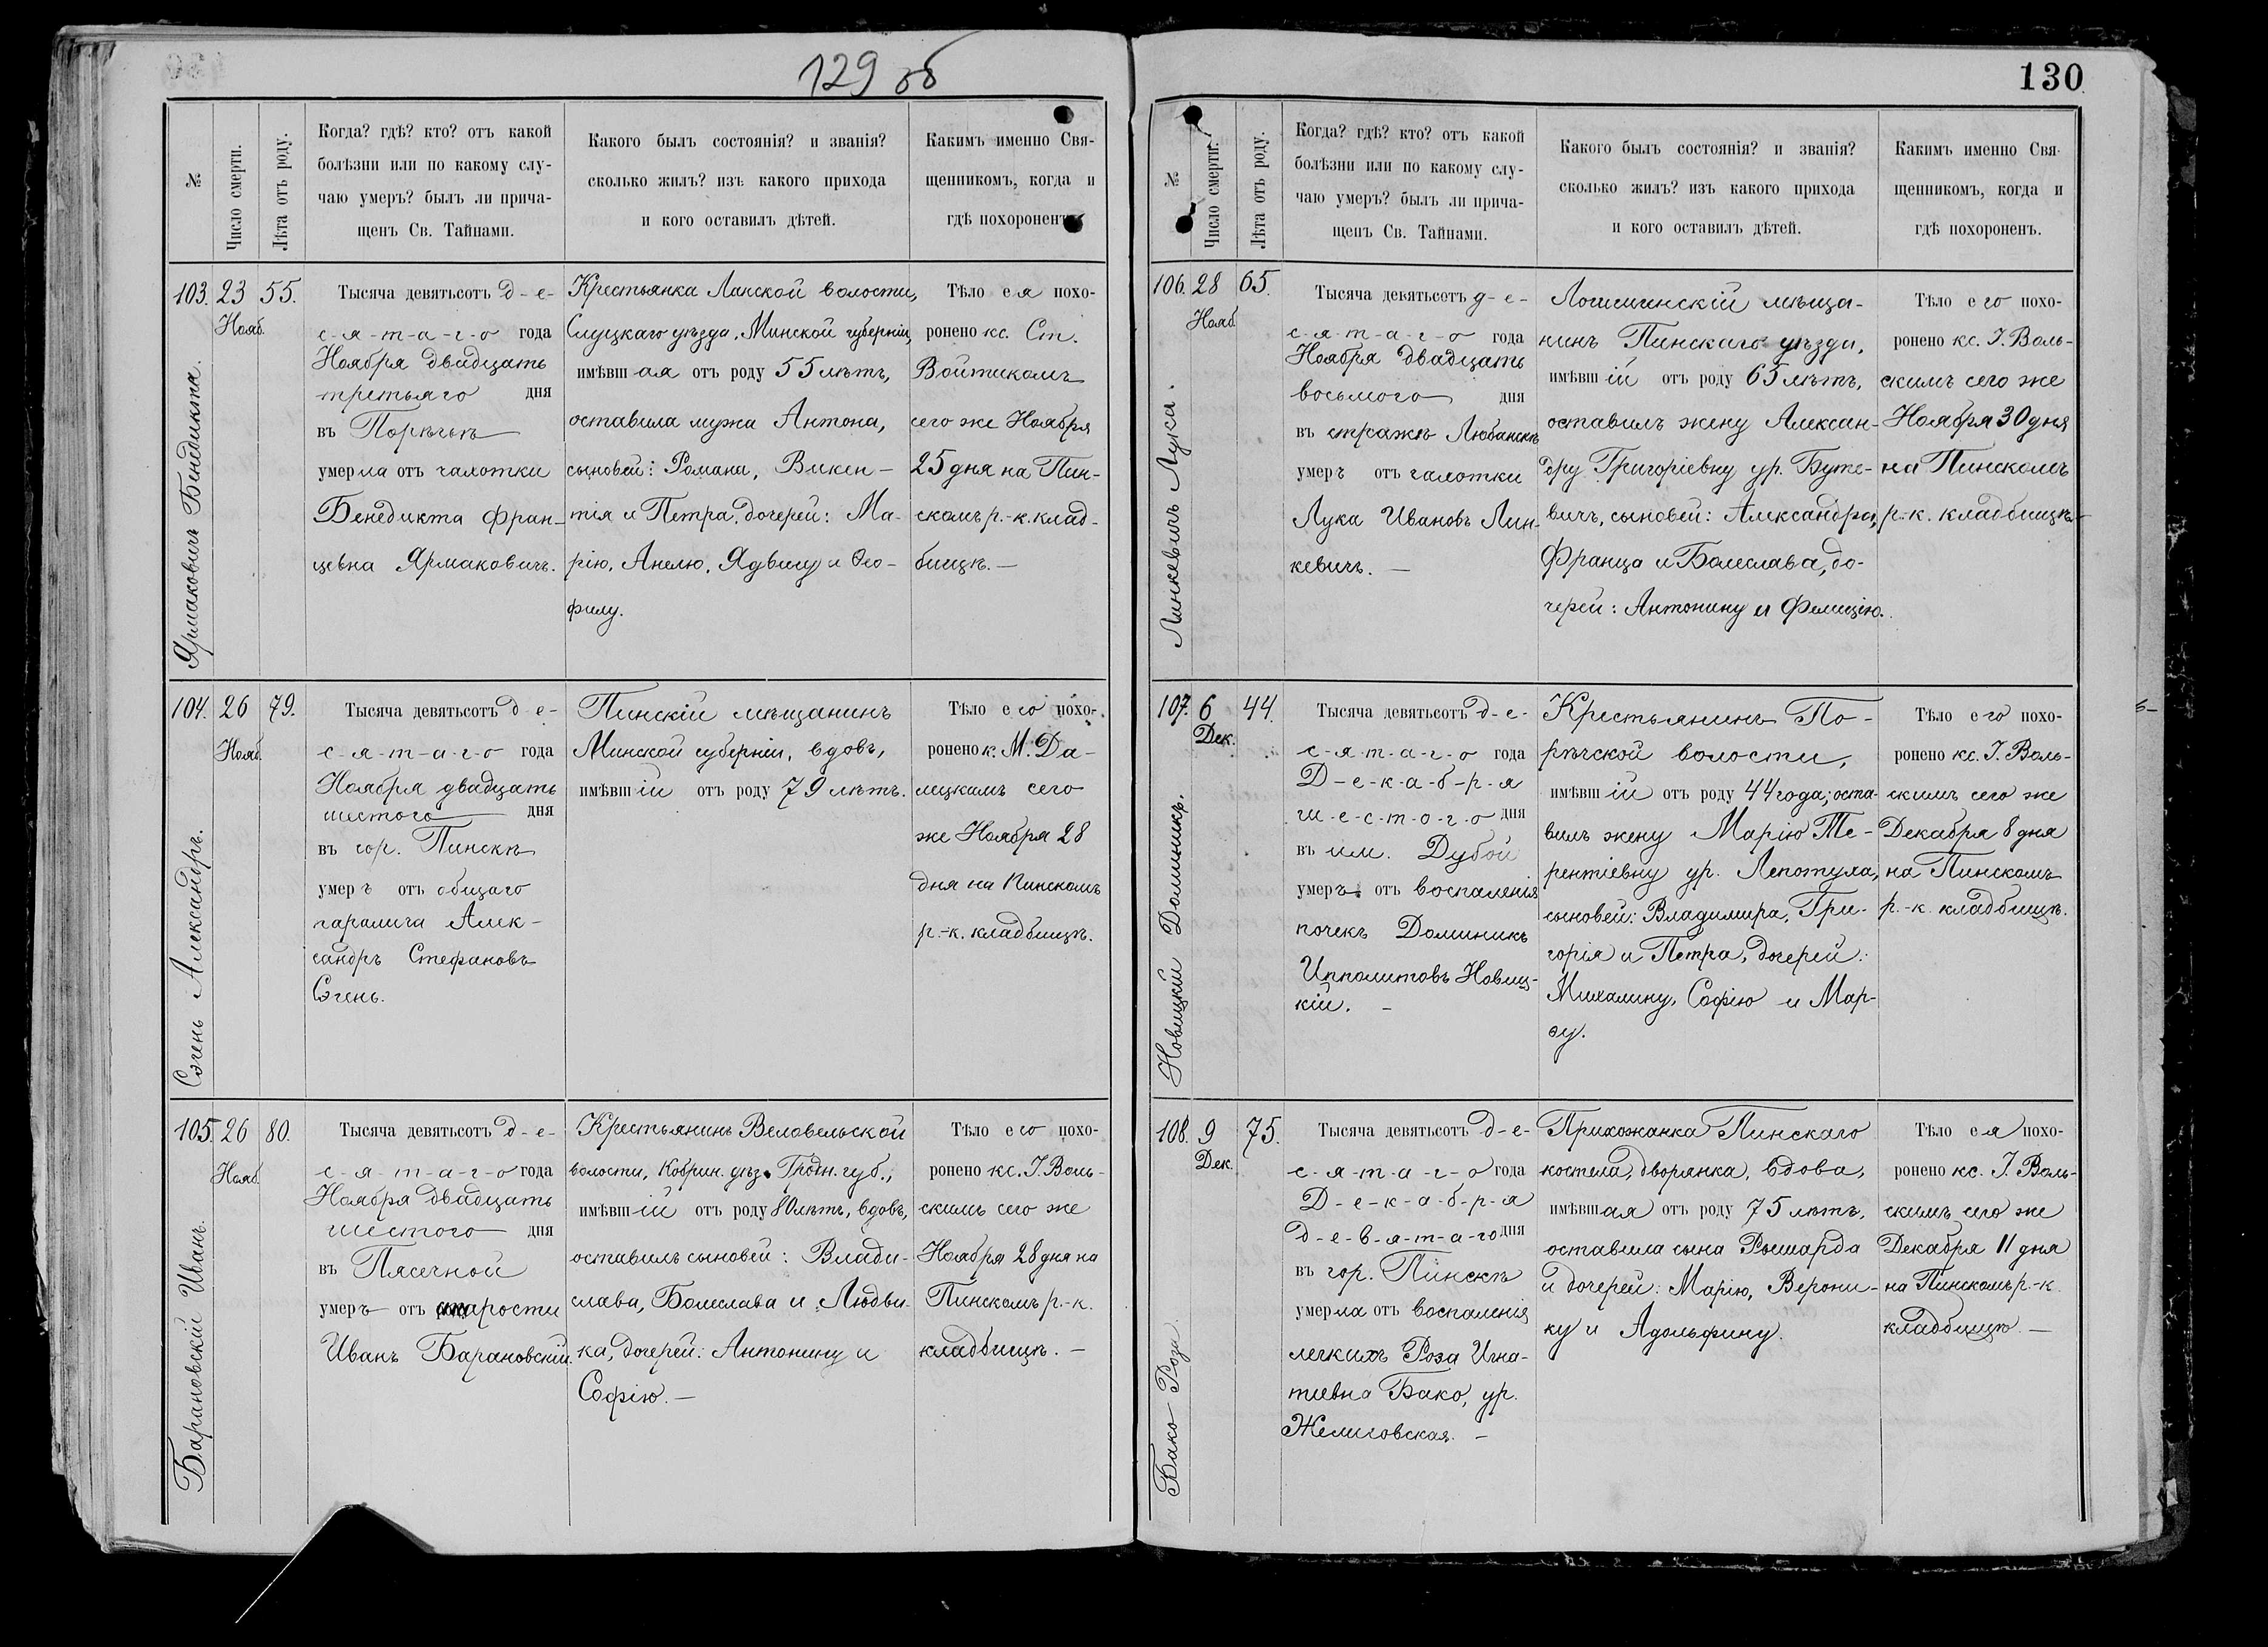 129 об
№
Число смерти.
Лѣта отъ роду.
Когда? гдѣ? кто? отъ какой
болѣзни или по какому слу-
чаю умеръ? былъ ли прича-
щенъ Св. Тайнами.
Какого былъ состоянія? и званія?
сколько жилъ? изъ какого прихода
и кого оставилъ дѣтей.
Какимъ именно Свя-
щенникомъ, когда и
гдѣ похороненъ
103. 23 55.
Нояб.
Ярмаковичъ Бенедикта.
Тысяча девятьсотъ д-е-
с-я-т-а-г-о года
Ноября двадцать
третьяго дня
въ Порѣчьѣ
умерла отъ чахотки
Бенедикта Фран-
цевна Ярмаковичъ.
Крестьянка Ланской волости,
Слуцкаго уѣзда, Минской губерніи,
имѣвшая отъ роду 55 лѣтъ,
оставила мужа Антона,
сыновей: Романа, Викен-
тія и Петра, дочерей: Ма-
рію, Анелю, Ядвигу и Ѳео-
филу.
Тѣло ея похо-
ронено кс. Ст.
Войтикомъ
сего же Ноября
25 дня на Пин-
скомъ р.-к. клад-
бищѣ. —
104. 26 79.
Нояб.
Сэгень Александръ.
Тысяча девятьсотъ д-е-
с-я-т-а-г-о года
Ноября двадцать
шестого дня
въ гор. Пинскѣ
умеръ отъ общаго
паралича Алек-
сандръ Стефановъ
Сэгень.
Пинскій мѣщанинъ
Минской губерніи, вдовъ,
имѣвшій отъ роду 79 лѣтъ.
Тѣло его похо-
ронено к. М. Да-
лецкимъ сего
же Ноября 28
дня на Пинскомъ
р.-к. кладбищѣ.
105. 26 80.
Нояб.
Барановскій Иванъ.
Тысяча девятьсотъ д-е-
с-я-т-а-г-о года
Ноября двадцать
шестого дня
въ Пясечной
умеръ отъ старости
Иванъ Барановскій.
Крестьянинъ Веловельской
волости, Кобрин. уѣз. Гродн. губ.,
имѣвшій отъ роду 80 лѣтъ, вдовъ,
оставилъ сыновей: Влади-
слава, Болеслава и Людви-
ка, дочерей: Антонину и
Софію. —
Тѣло его похо-
ронено кс. І. Воль-
скимъ сего же
Ноября 28 дня на
Пинскомъ р.-к.
кладбищѣ. —
130
№
Число смерти.
Лѣта отъ роду.
Когда? гдѣ? кто? отъ какой
болѣзни или по какому слу-
чаю умеръ? былъ ли прича-
щенъ Св. Тайнами.
Какого былъ состоянія? и званія?
сколько жилъ? изъ какого прихода
и кого оставилъ дѣтей.
Какимъ именно Свя-
щенникомъ, когда и
гдѣ похороненъ.
106. 28 65.
Нояб
Линкевичъ Лука.
Тысяча девятьсотъ д-е-
с-я-т-а-г-о года
Ноября двадцать
восьмого дня
въ стражѣ Любанскѣ
умеръ отъ чахотки
Лука Ивановъ Лин-
кевичъ. —
Логишинскій мѣща-
нинъ Пинскаго уѣзда,
имѣвшій отъ роду 65 лѣтъ,
оставилъ жену Алексан-
дру Григоріевну ур. Буке-
вичъ, сыновей: Александра,
Франца и Болеслава, до-
черей: Антонину и Фелицію.
Тѣло его похо-
ронено кс. І. Воль-
скимъ сего же
Ноября 30 дня
на Пинскомъ
р.-к. кладбищѣ.
107. 6 44.
Дек.
Новицкій Доминикъ.
Тысяча девятьсотъ д-е-
с-я-т-а-г-о года
Д-е-к-а-б-р-я
ш-е-с-т-о-г-о дня
въ им. Дубой
умеръ отъ воспаленія
почекъ Доминикъ
Ипполитовъ Новиц-
кій. —
Крестьянинъ По-
рѣчской волости,
имѣвшій отъ роду 44 года; оста-
вилъ жену Марію Те-
рентіевну ур. Лепотуха,
сыновей: Владимира, Гри-
горія и Петра, дочерей:
Михалину, Софію и Мар-
ѳу.
Тѣло его похо-
ронено кс. І. Воль-
скимъ сего же
Декабря 8 дня
на Пинскомъ
р.-к. кладбищѣ.
108. 9 75.
Дек.
Бако Роза.
Тысяча девятьсотъ д-е-
с-я-т-а-г-о года
Д-е-к-а-б-р-я
д-е-в-я-т-а-го дня
въ гор. Пинскѣ
умерла отъ воспаленія
легкихъ Роза Игна-
тіевна Бако, ур.
Желиговская. —
Прихожанка Пинскаго
костела, дворянка, вдова,
имѣвшая отъ роду 75 лѣтъ,
оставила сына Рышарда
и дочерей: Марію, Верони-
ку и Адольфину.
Тѣло ея похо-
ронено кс. І. Воль-
скимъ сего же
Декабря 11 дня
на Пинскомъ р.-к.
кладбищѣ. —